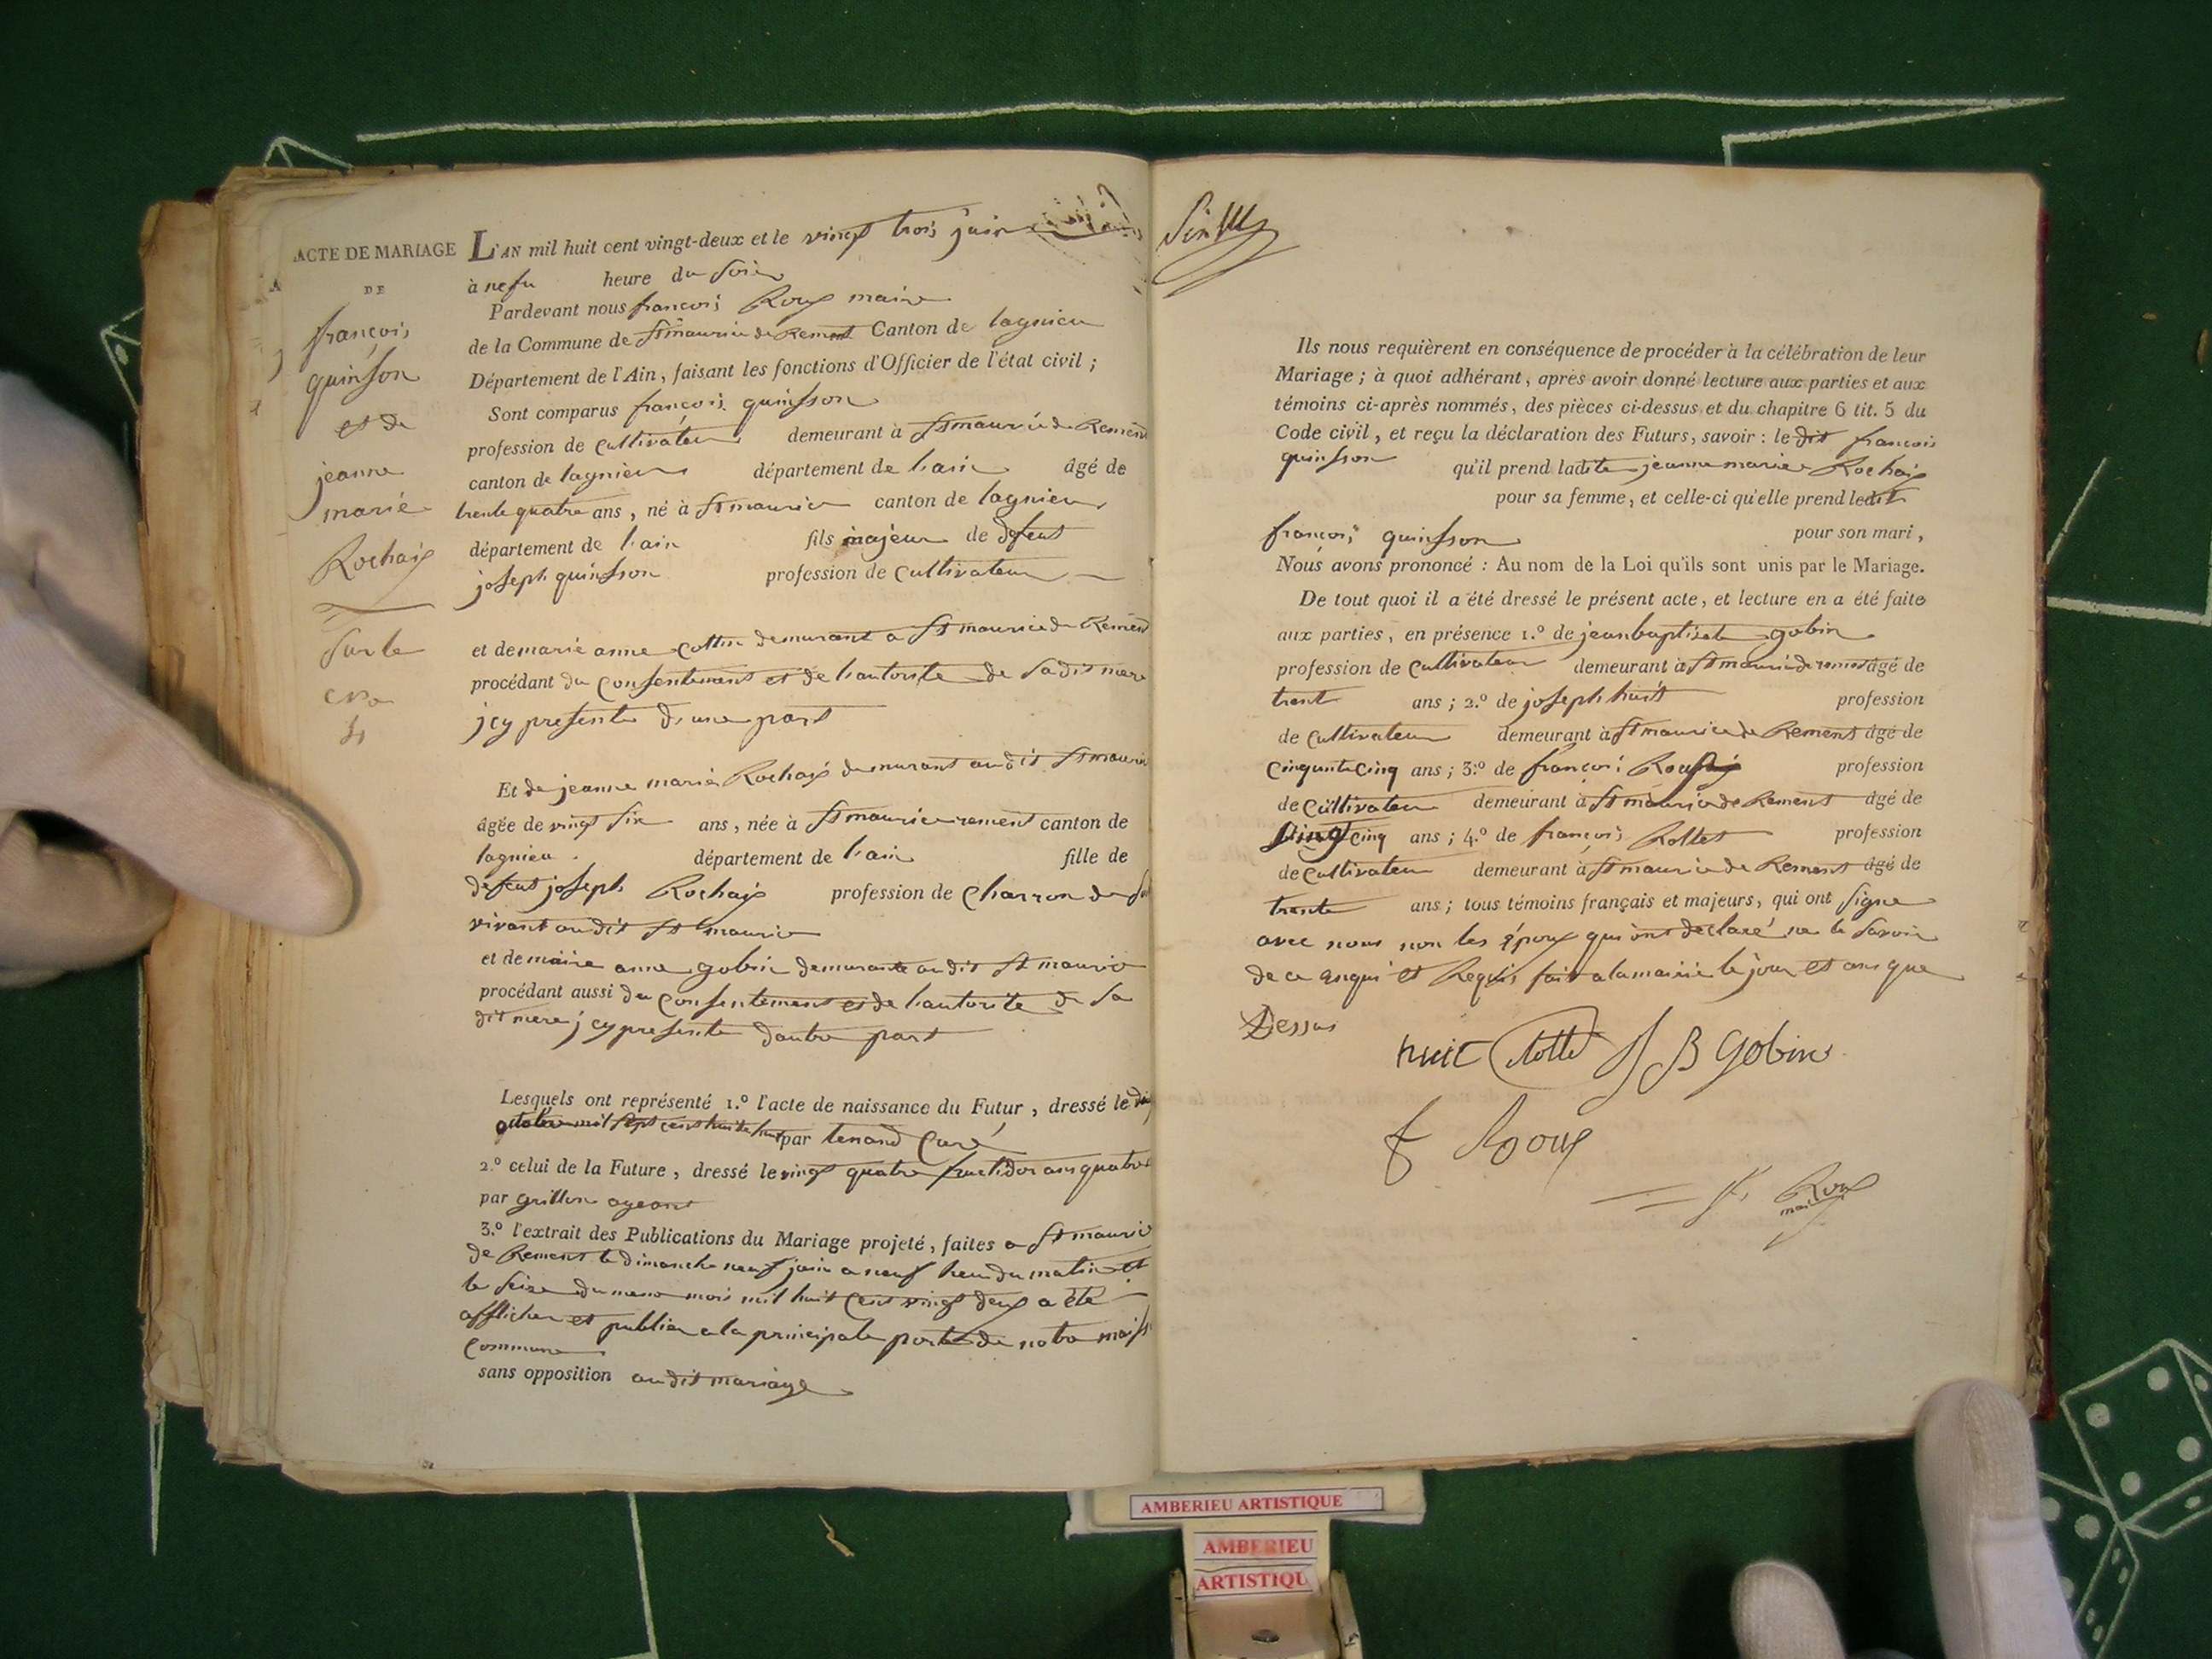 ACTE DE MARIAGE
DE
françois
quinson
et de
jeanne
marie
Rochaix
Sur le
No
4
L'AN mil huit cent vingt-deux et le vingt trois juin
à heure du soir
Pardevant nous françois Roux maire
de la Commune de St maurice de Remens Canton de lagnieu
Département de l'Ain, faisant les fonctions d'Officier de l'état civil ;
Sont comparus françois quinson
profession de Cultivateur demeurant à St maurice de Remens
canton de lagnieu département de l'ain âgé de
trente quatre ans, né à St maurice canton de lagnieu
département de l'ain fils majeur de defeut
joseph quinson profession de Cultivateur
et de marie anne Cottin demurant a St maurice de Remens
procédant du Consentement et de l'autorite de sa dit mere
jcy presente d'une part
Et de jeanne marie Rochaix demurant au dit St maurice
âgée de vingt six ans, née à St maurice remens canton de
lagnieu . département de l'ain fille de
defeut joseph Rochaix profession de Charron de son
vivant au dit St maurice
et de marie anne gobin demurante au dit St maurice
procédant aussi du Consentement et de l'autorite de sa
dit mere jcy presente dautre part
Lesquels ont représenté 1.º l'acte de naissance du Futur, dressé le
octobre mil sept cent huite huit par tenand Curé
2.º celui de la Future, dressé le vingt quatre fructidor an quatre
par grillon agent
3.º l'extrait des Publications du Mariage projeté, faites a St maurice
de Remens le dimanche neuf juin a neuf heur du matin et
le seize du meme mois mil huit Cent vingt deux a été
afflicher et publier a la principale porte de notre maison
Commune
sans opposition au dit mariage
Ils nous requièrent en conséquence de procéder à la célébration de leur
Mariage ; à quoi adhérant, après avoir donné lecture aux parties et aux
témoins ci-après nommés, des pièces ci-dessus et du chapitre 6 tit. 5 du
Code civil, et reçu la déclaration des Futurs, savoir : le dit françois
quinson qu'il prend ladite jeanne marie Rochaix
pour sa femme, et celle-ci qu'elle prend ledit
françois quinson pour son mari,
Nous avons prononcé : Au nom de la Loi qu'ils sont unis par le Mariage.
De tout quoi il a été dressé le présent acte, et lecture en a été faite
aux parties, en présence 1.º de jean baptiste gobin
profession de Cultivateur demeurant à St maurice de remens âgé de
trent ans ; 2.º de joseph huit profession
de Cultivateur demeurant à St maurice de Remens âgé de
Cinquante Cinq ans ; 3.º de françois profession
de Cultivateur demeurant à St maurice de Remens âgé de
vingt cinq ans ; 4.º de françois Rollet profession
de Cultivateur demeurant à St maurice de Remens âgé de
trente ans ; tous témoins français et majeurs, qui ont signe
avec nous non les époux qui ont declaré ne le savoir
de ce anqui et Requis fait a la mairie le jour et an que
Dessus
huit Rollet J B Gobin
f Roux
f. Roux
maire
AMBERIEU ARTISTIQUE
AMBERIEU
ARTISTIQU